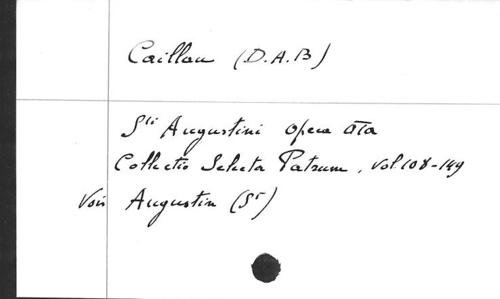 Caillau (D.A.B)
Sti Augustini opera oïa
Collectio Selecta Patrum, vol 108-149
Voir Augustin (St)